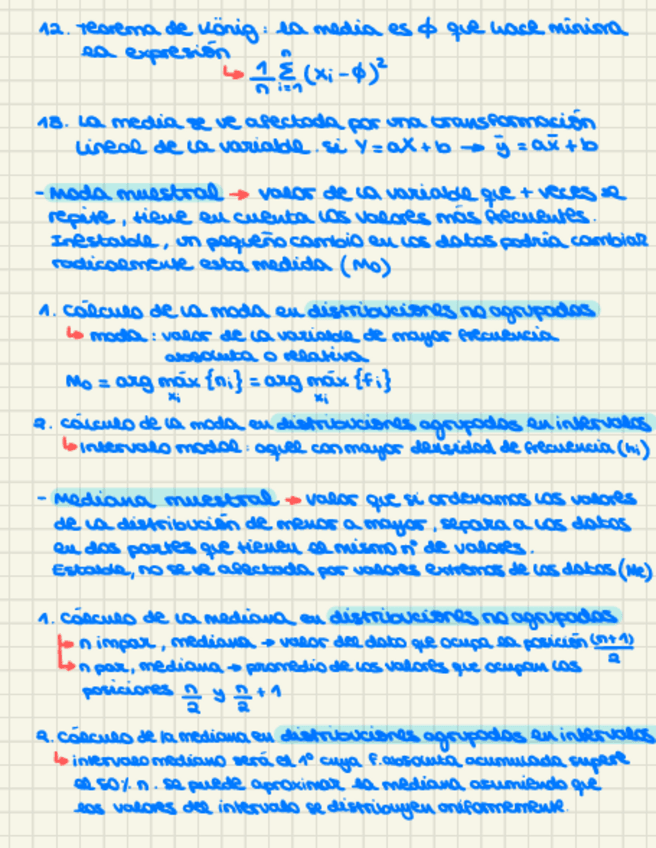 12. Teorema de König: la media es ϕ que hace mínima
la expresión
↳ 1/n Σ_{i=1}^{n} (xi - ϕ)²
13. La media se ve afectada por una transformación
lineal de la variable. si Y = aX + b → ȳ = ax̄ + b
- Moda muestral → valor de la variable que + veces se
repite, tiene en cuenta los valores más frecuentes.
Inestable, un pequeño cambio en los datos podría cambiar
radicalmente esta medida (Mo)
1. cálculo de la moda en distribuciones no agrupadas
↳ moda: valor de la variable de mayor frecuencia
absoluta o relativa
Mo = arg máx_{xi} {ni} = arg máx_{xi} {fi}
2. cálculo de la moda en distribuciones agrupadas en intervalos
↳ intervalo modal: aquel con mayor densidad de frecuencia (hi)
- Mediana muestral → valor que si ordenamos los valores
de la distribución de menor a mayor, separa a los datos
en dos partes que tienen el mismo nº de valores.
Estable, no se ve afectada por valores extremos de los datos (Me)
1. cálculo de la mediana en distribuciones no agrupadas
↳ n impar, mediana → valor del dato que ocupa la posición (n+1)/2
↳ n par, mediana → promedio de los valores que ocupan las
posiciones n/2 y n/2 + 1
2. cálculo de la mediana en distribuciones agrupadas en intervalos
↳ intervalo mediano será el 1º cuya f. absoluta acumulada supere
el 50% n. se puede aproximar la mediana asumiendo que
los valores del intervalo se distribuyen uniformemente.